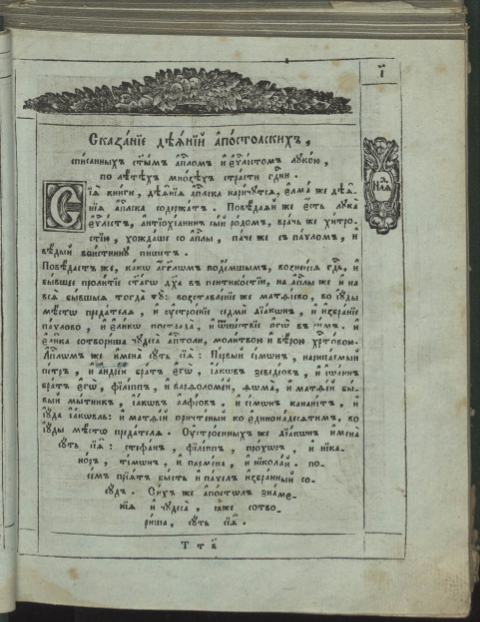 і
Сказа́нїе дѣѧ́нїй а҆пⷭ҇толскихъ,
списанныхъ ст҃ы́мъ а҆пⷭ҇ломъ и҆ є҆ѵⷢ҇лїстомъ лꙋко́ю,
по лѣ́тѣхъ мно́зѣхъ стра́сти гдⷭ҇ни.
Сїѧ̀ кни́ги, дѣѧ́нїѧ а҆пⷭ҇лска нарича́ютсѧ, є҆лма́ же дѣѧ́-
нїѧ а҆пⷭ҇лска содержа́тъ. Повѣ́даѧй же є҆́сть лꙋка̀
є҆ѵⷢ҇лїстъ, а҆нтїохїа́нинъ сы́й ро́домъ, вра́чь же хи́тро-
стїю, хожда́ше со а҆пⷭ҇лы, па́че же съ па́ѵломъ, и҆
вѣ́дый вои́стиннꙋ пи́шетъ.
Повѣ́даетъ же, ка́кѡ а҆́гг҃лѡмъ поде́мшымъ, вознесе́сѧ гдⷭ҇ь, и҆
бы́вшее проли́тїе ст҃а́гѡ дх҃а въ пентико́стїю, на а҆пⷭ҇лы же и҆ на
всѧ̀ бы́вшыѧ тогда̀ тꙋ̀: возставле́нїе же матѳі́ево, во і҆ꙋ́ды
мѣ́стѡ преда́телѧ, и҆ ᲂу҆строе́нїе седмѝ дїа́кѡнъ, и҆ и҆збра́нїе
па́ѵлово, и҆ є҆ли́кѡ пострада̀, и҆ ѿше́ствїе є҆гѡ̀ въ ри́мъ. и҆
є҆ли́ка сотвори́ша чꙋдеса̀ а҆пⷭ҇толи, моли́твою и҆ вѣ́рою хрⷭ҇то́вою.
А҆пⷭ҇лѡмъ же и҆мена̀ сꙋ́ть сїѧ̑: Пе́рвый сі́мѡнъ, нарица́емый
пе́тръ, и҆ а҆ндре́й бра́тъ є҆гѡ̀, і҆а́кѡвъ зеведе́овъ, и҆ і҆ѡа́ннъ
бра́тъ є҆гѡ̀, фїлі́ппъ, и҆ варѳоломе́й, ѳѡма̀, и҆ матѳе́й бы́-
вый мы́тникъ, і҆а́кѡвъ а҆лфе́овъ, и҆ сі́мѡнъ канані́тъ, и҆
і҆ꙋ́да і҆а́кѡвль: и҆ матѳі́й причте́ный ко є҆динонадесѧ́тимъ, во
і҆ꙋ́ды мѣ́стѡ преда́телѧ. Оу҆строе́нныхъ же дїа́кѡнъ и҆мена̀
сꙋ́ть сїѧ̑: стефа́нъ, фїлі́ппъ, про́хѡръ, и҆ ніка-
но́ръ, ті́мѡнъ, и҆ парме́на, и҆ нїкола́й. по-
се́мъ прїѧ́тъ бы́сть и҆ па́ѵелъ и҆збра́нный со-
сꙋ́дъ. Си́хъ же а҆пⷭ҇тѡлъ зна́ме-
нїѧ и҆ чꙋдеса̀, ꙗ҆̀же сотво-
ри́ша, сꙋ́ть сїѧ̑.
Т т в҃